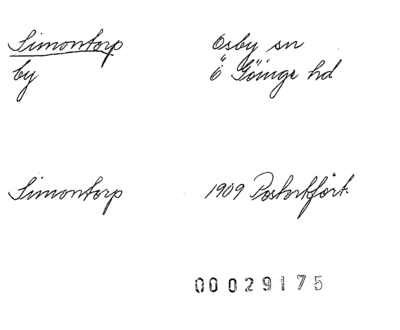 Simontorp Osby sn
by Ö Göinge hd
Simontorp 1909 Postortfört.
00029175